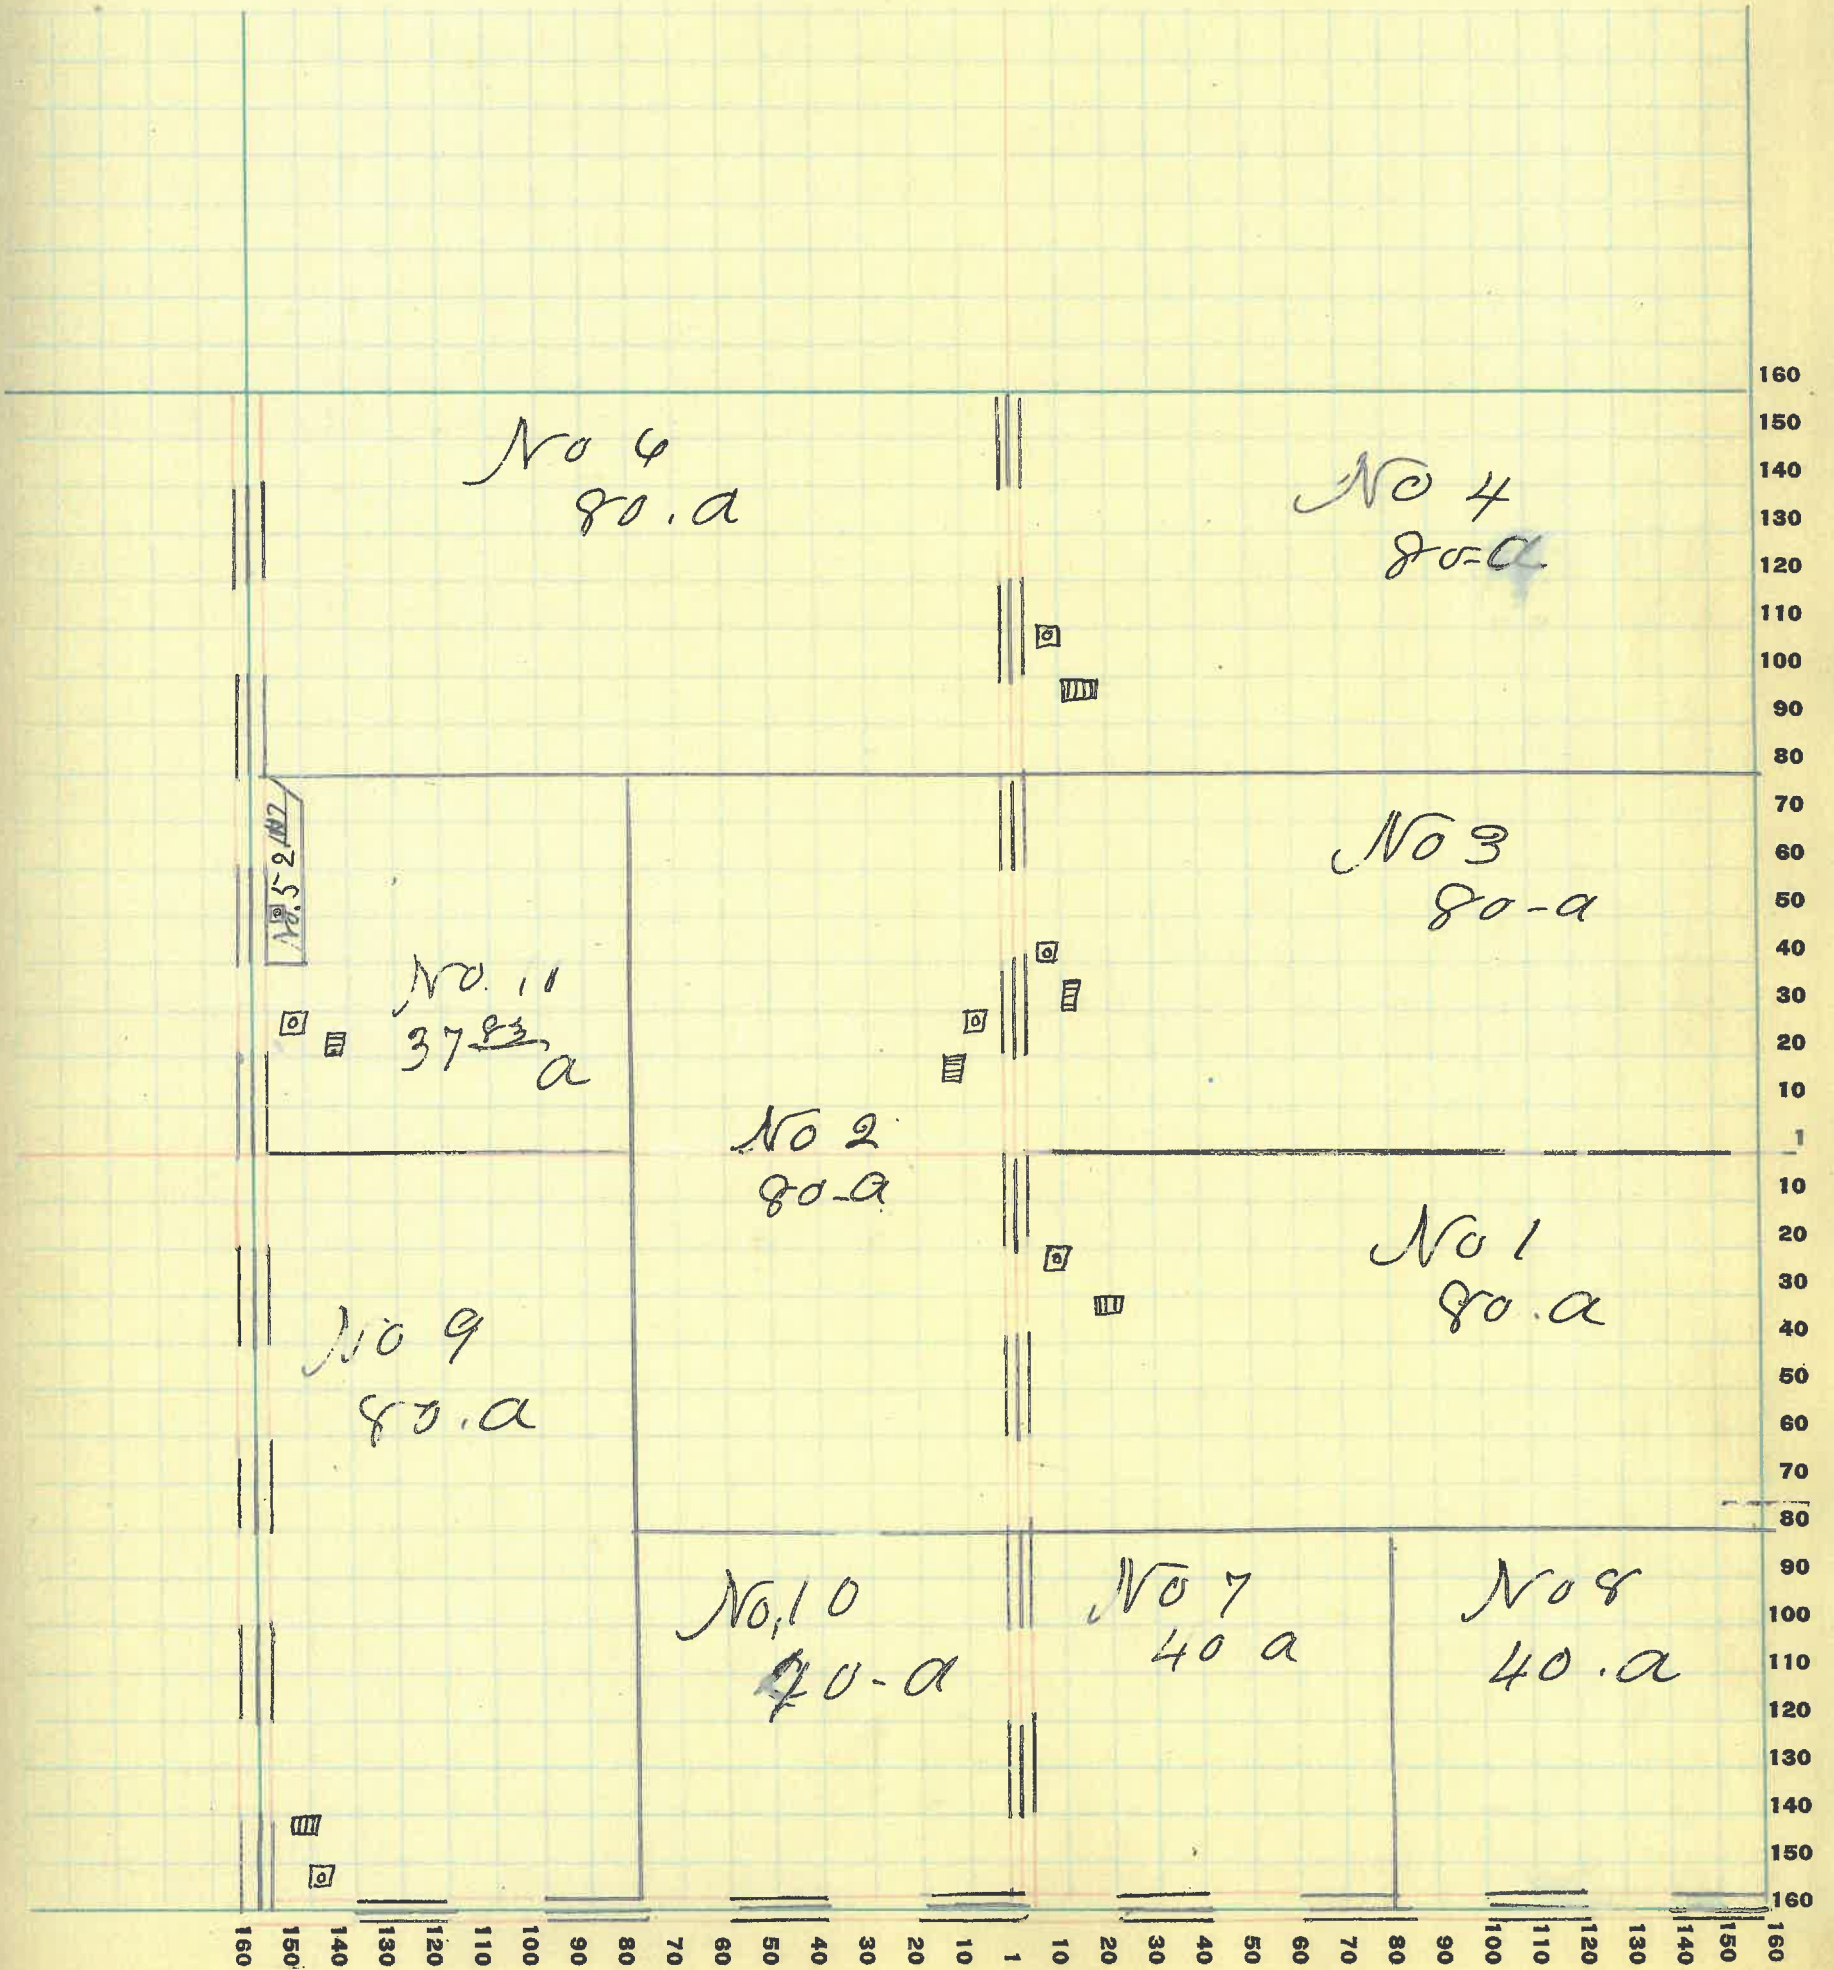 No 6
80.a
No 4
80=a
No 3
80-a
No. 5 2
No. 11
37 83 a
No 2
80-a
No 1
80.a
No 9
80.a
No,10
40-a
No 7
40 a
No 8
40.a
160
150
140
130
120
110
100
90
80
70
60
50
40
30
20
10
1
10
20
30
40
50
60
70
80
90
100
110
120
130
140
150
160
160 150 140 130 120 110 100 90 80 70 60 50 40 30 20 10 1 10 20 30 40 50 60 70 80 90 100 110 120 130 140 150 160